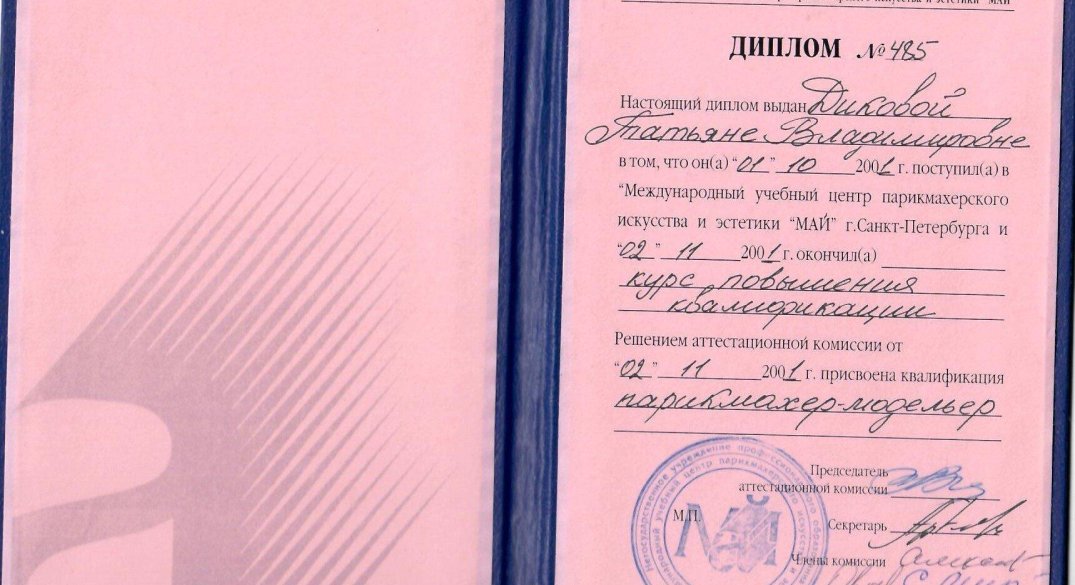 искусства и эстетики "МАЙ"
ДИПЛОМ № 485
Настоящий диплом выдан Диковой
Татьяне Владимировне
в том, что он(а) "01" 10 2001 г. поступил(а) в
"Международный учебный центр парикмахерского
искусства и эстетики "МАЙ" г.Санкт-Петербурга и
"02" 11 2001 г. окончил(а)
курс повышения
квалификации
Решением аттестационной комиссии от
"02" 11 2001 г. присвоена квалификация
парикмахер-модельер
Председатель
аттестационной комиссии
М.П.
Секретарь
Члены комиссии
Негосударственное учреждение профессионального образования
международный учебный центр парикмахерского искусства и
МАЙ